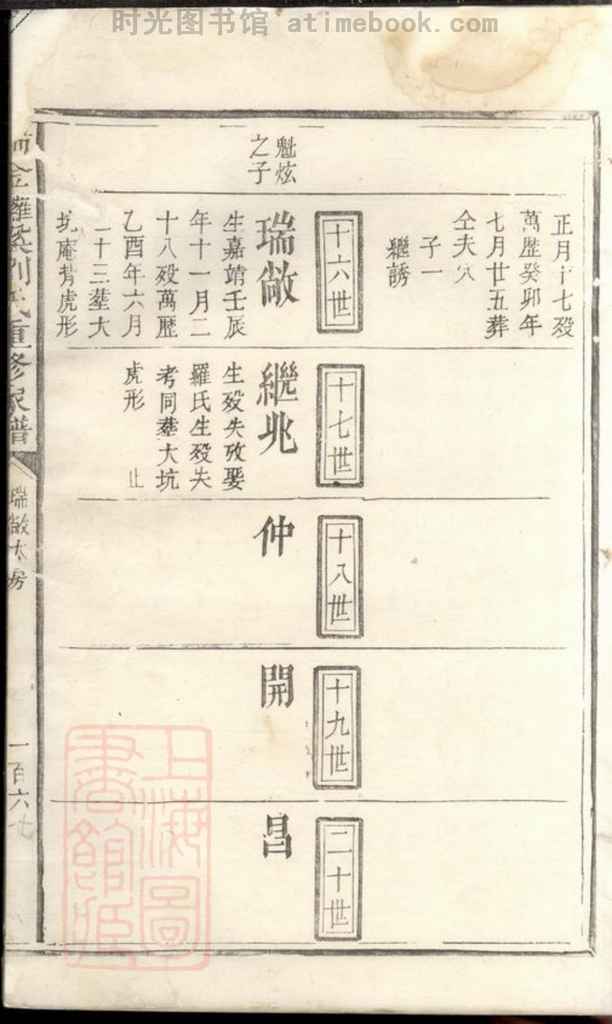 时光图书馆 atimebook.com
正月十七殁
萬歷癸卯年
七月廿五葬
仝夫穴
子一
繼誘
十六世
魁炫
之子
瑞敞
生嘉靖壬辰
年十一月二
十八殁萬歷
乙酉年六月
二十三塟大
坑庵背虎形
十七世
繼兆
生殁失攷娶
羅氏生殁失
考同塟大坑
虎形 止
十八世
仲
十九世
開
二十世
昌
金
劉氏重修家譜
瑞敞大房
一百六七
上海圖
書館藏